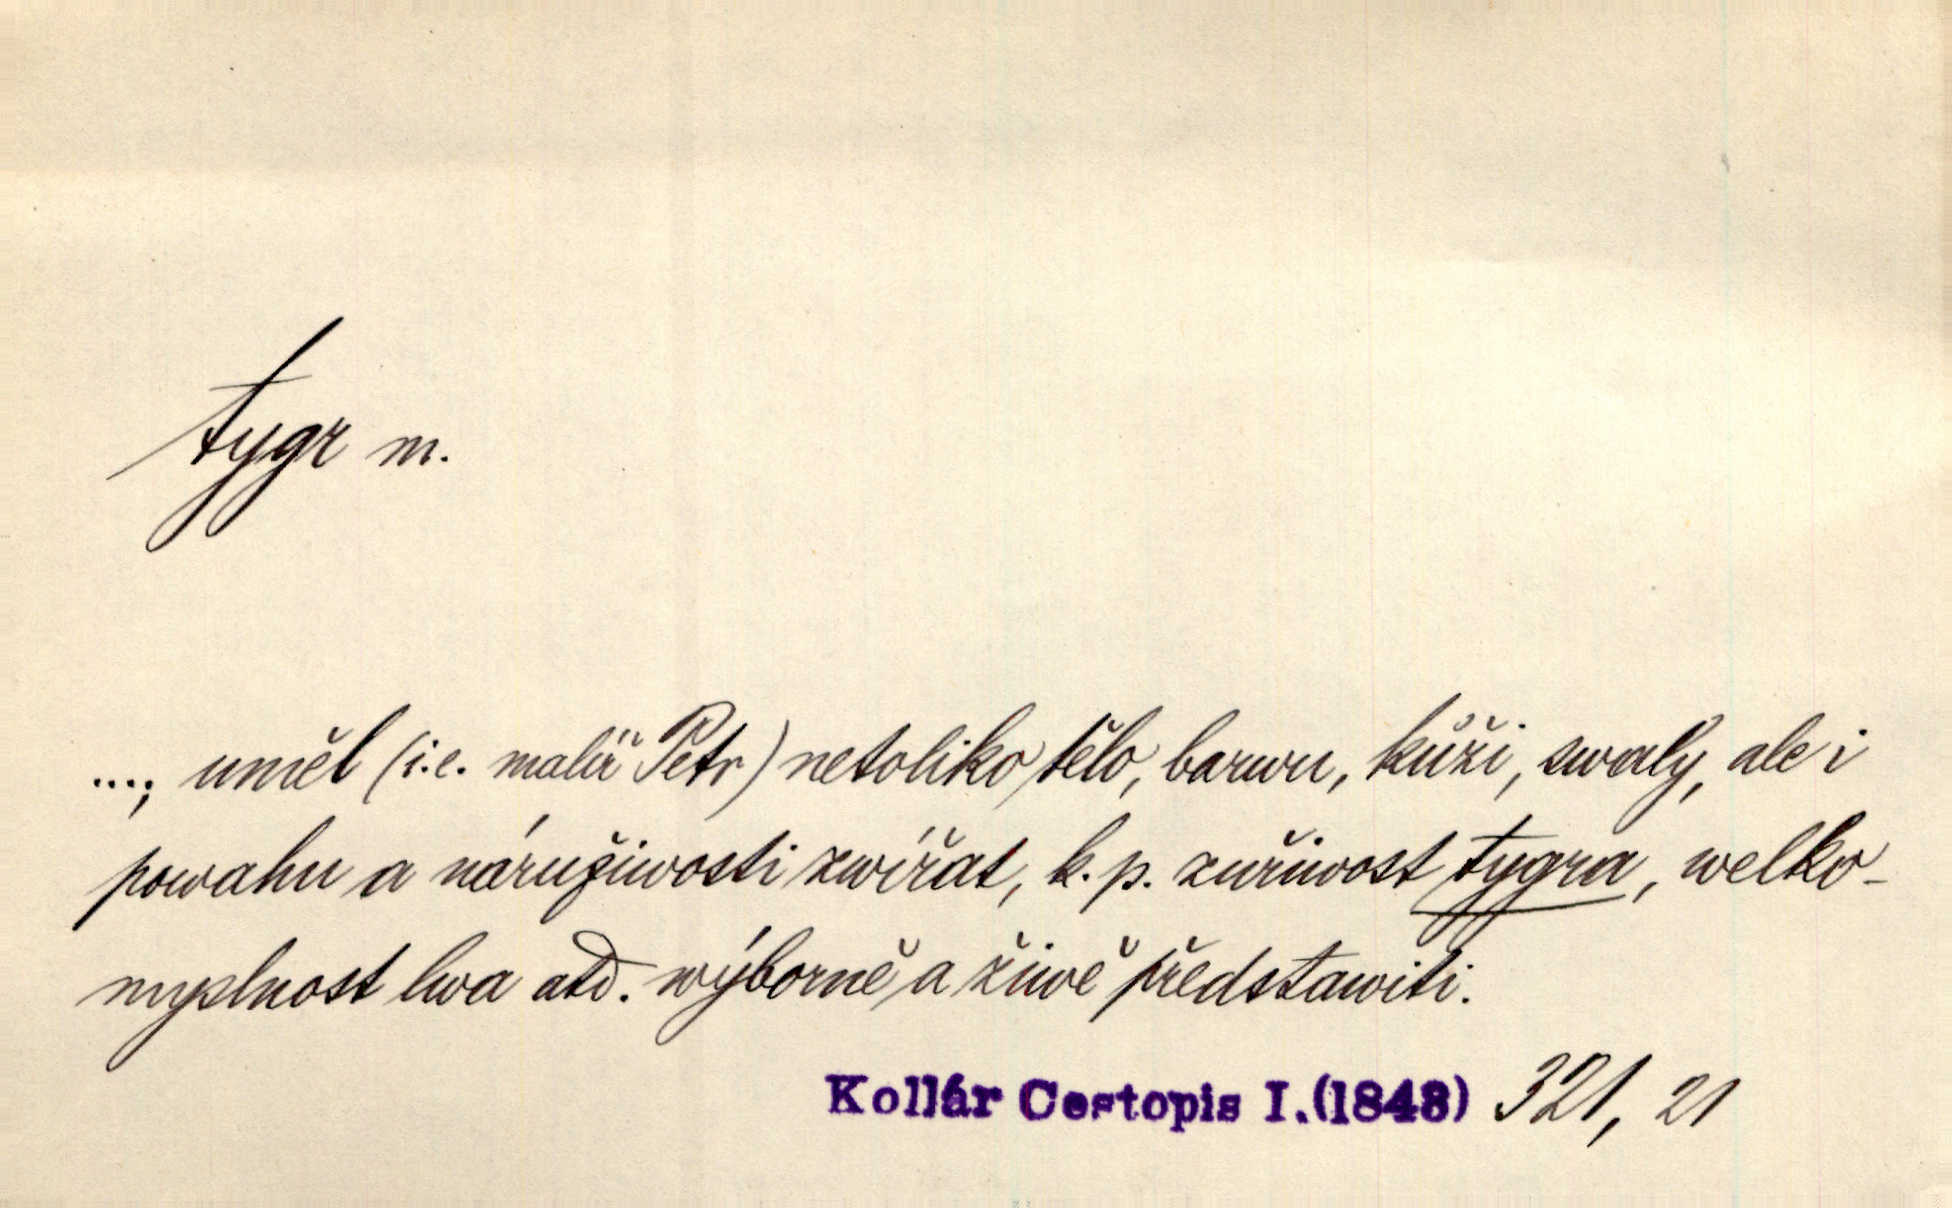 tygr m.
...; uměl (i.e. malíř Petr) netoliko tělo, barwu, kůži, swaly, ale i
powahu a náruživosti zwířat, k. p. zuřivost tygra, welko-
myslnost lwa atd. wýborně a živě představiti.
Kollár Cestopis I. (1843) 321, 21